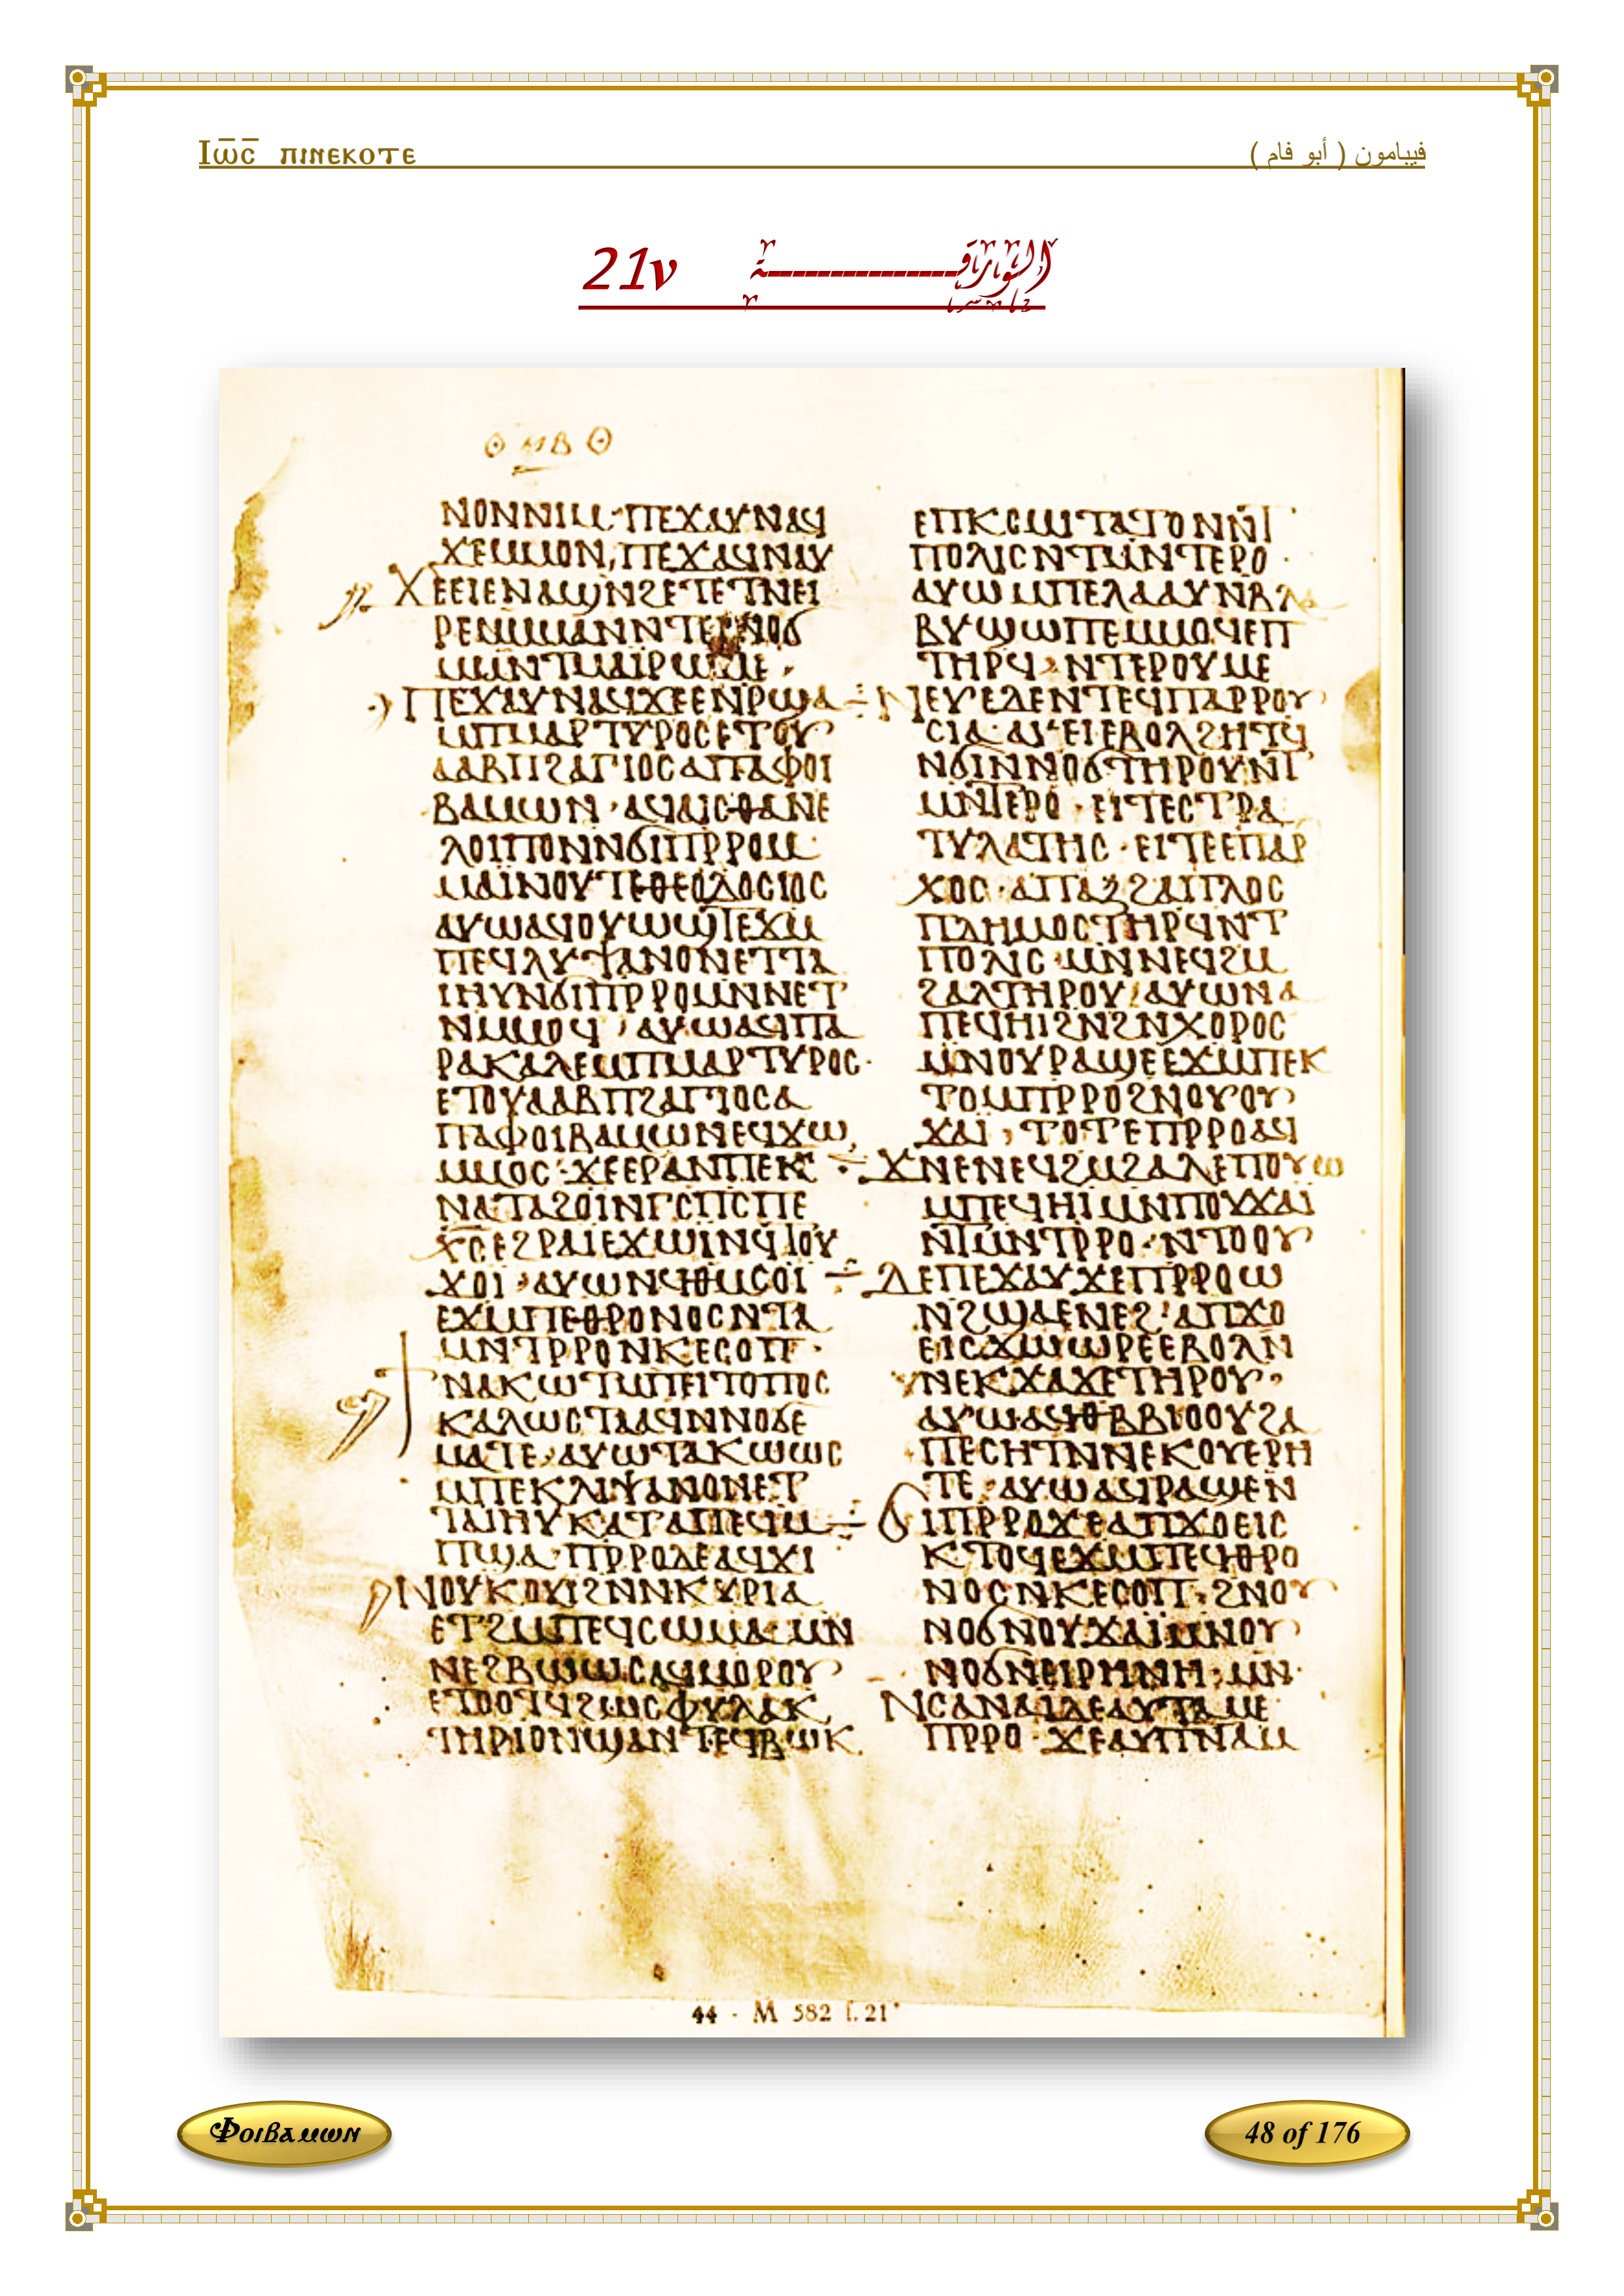 Ⲓⲱ̅ⲥ̅ ⲡⲓⲛⲉⲕⲟⲧⲉ
فيبامون ( أبو فام )
الورقة 21v
ⲙⲃ
ⲛⲟⲛⲛⲓⲙ·ⲡⲉϫⲁⲩⲛⲁϥ
ϫⲉⲙⲙⲟⲛ,ⲡⲉϫⲁϥⲛⲁⲩ
ϫⲉⲉⲓⲉⲛⲁϣⲛϩⲉⲧⲉⲧⲛⲉⲓ
ⲙⲛⲧⲙⲁⲓⲣⲱⲙⲉ·
ⲡⲉϫⲁⲩⲛⲁϥϫⲉⲉⲛⲣϣⲁ
ⲙⲡⲙⲁⲣⲧⲩⲣⲟⲥⲉⲧⲟⲩ
ⲁⲁⲃⲡϩⲁⲅⲓⲟⲥⲁⲡⲁⲫⲟⲓ
ⲃⲁⲙⲱⲛ·ⲁϥⲁⲓⲥⲑⲁⲛⲉ
ⲗⲟⲓⲡⲟⲛⲛϭⲓⲡⲣⲣⲟⲙ
ⲙⲁⲓⲛⲟⲩⲧⲉⲑⲉⲟⲇⲟⲥⲓⲟⲥ
ⲁⲩⲱⲁϥⲟⲩⲱϣⲧⲉϫⲙ
ⲡⲉϥⲗⲩⲯⲁⲛⲟⲛⲉⲧⲧⲁ
ⲓⲏⲩⲛϭⲓⲡⲣⲣⲟⲙⲛⲛⲉⲧ
ⲛⲙⲙⲟϥ·ⲁⲩⲱⲁϥⲡⲁ
ⲣⲁⲕⲁⲗⲉⲙⲡⲙⲁⲣⲧⲩⲣⲟⲥ·
ⲉⲧⲟⲩⲁⲁⲃⲡϩⲁⲅⲓⲟⲥⲁ
ⲡⲁⲫⲟⲓⲃⲁⲙⲱⲛⲉϥϫⲱ
ⲙⲙⲟⲥ·ϫⲉⲉⲣⲁⲛⲡⲉⲕ
ⲛⲁⲧⲁϩⲟⲓⲛⲅⲥⲡⲥⲡⲉ
ⲭ̅ⲥ̅ⲉϩⲣⲁⲓⲉϫⲱⲓⲛϥⲧⲟⲩ
ϫⲟⲓ·ⲁⲩⲱⲛϥⲑⲙⲥⲟⲓ
ⲉϫⲙⲡⲉⲑⲣⲟⲛⲟⲥⲛⲧⲁ
ⲙⲛⲧⲣⲣⲟⲛⲕⲉⲥⲟⲡ·
ϯⲛⲁⲕⲱⲧⲙⲡⲉⲓⲧⲟⲡⲟⲥ
ⲕⲁⲗⲱⲥⲧⲁⲁϥⲛⲛⲟϭⲉ
ⲙⲁⲧⲉ·ⲁⲩⲱⲧⲁⲕⲱⲱⲥ
ⲙⲡⲉⲕⲗⲓⲯⲁⲛⲟⲛⲉⲧ
ⲧⲁⲓⲏⲩⲕⲁⲧⲁⲡⲉϥⲙ
ⲡϣⲁ·ⲡⲣⲣⲟⲇⲉⲁϥϫⲓ
ⲛⲟⲩⲕⲟⲩⲓϩⲛⲛⲕⲩⲣⲓⲁ
ⲉⲧϩⲙⲡⲉϥⲥⲱⲙⲁ·ⲙⲛ
ⲛⲉϩⲃⲱⲱⲥⲁϥⲙⲟⲣⲟⲩ
ⲉⲧⲟⲟⲧϥϩⲱⲥⲫⲩⲗⲁⲕ
ⲧⲏⲣⲓⲟⲛϣⲁⲛⲧⲉϥⲃⲱⲕ
ⲉⲡⲕⲱⲧⲁⲧⲟⲛⲛⲧ
ⲡⲟⲗⲓⲥⲛⲧⲙⲛⲧⲉⲣⲟ·
ⲁⲩⲱⲙⲡⲉⲗⲁⲁⲩⲛⲃⲗ
ⲃⲩϣⲱⲡⲉⲙⲙⲟϥⲉⲡ
ⲧⲏⲣϥ·ⲛⲧⲉⲣⲟⲩⲙⲉ
ⲛⲉⲩⲉⲇⲉⲛⲧⲉϥⲡⲁⲣⲣⲟⲩ
ⲥⲓⲁ·ⲁⲩⲉⲓⲉⲃⲟⲗϩⲏⲧϥ
ⲛϭⲓⲛⲛⲟϭⲧⲏⲣⲟⲩⲛⲧ
ⲙⲛⲧⲉⲣⲟ·ⲉⲓⲧⲉⲥⲧⲣⲁ
ⲧⲩⲗⲁⲧⲏⲥ·ⲉⲓⲧⲉⲉⲡⲁⲣ
ⲭⲟⲥ·ⲁⲡⲁⲝϩⲁⲡⲗⲟⲥ
ⲡⲇⲏⲙⲟⲥⲧⲏⲣϥⲛⲧ
ⲡⲟⲗⲓⲥ·ⲙⲛⲛⲉϥϩⲙ
ϩⲁⲗⲧⲏⲣⲟⲩ·ⲁⲩⲱⲛⲁ
ⲡⲉϥⲏⲓϩⲛϩⲛⲭⲟⲣⲟⲥ
ⲙⲛⲟⲩⲣⲁϣⲉⲉϫⲙⲡⲉⲕ
ⲧⲟⲙⲡⲣⲣⲟϩⲛⲟⲩⲟⲩ
ϫⲁⲓ·ⲧⲟⲧⲉⲡⲣⲣⲟⲁϥ
ϫⲛⲉⲛⲉϥϩⲙϩⲁⲗⲉⲡⲟⲩⲱ
ⲙⲡⲉϥⲏⲓⲙⲛⲡⲟⲩϫⲁⲓ
ⲛⲧⲙⲛⲧⲣⲣⲟ·ⲛⲧⲟⲟⲩ
ⲇⲉⲡⲉϫⲁⲩϫⲉⲡⲣⲣⲟⲱ
ⲛϩϣⲁⲉⲛⲉϩ·ⲁⲡϫⲟ
ⲉⲓⲥϫⲱⲱⲣⲉⲉⲃⲟⲗⲛ
ⲛⲉⲕϫⲁϫⲉⲧⲏⲣⲟⲩ·
ⲁⲩⲱⲁϥⲑⲃⲃⲓⲟⲟⲩϩⲁ
ⲡⲉⲥⲏⲧⲛⲛⲉⲕⲟⲩⲉⲣⲏ
ⲧⲉ·ⲁⲩⲱⲁϥⲣⲁϣⲉⲛ
ϭⲓⲡⲣⲣⲟϫⲉⲁⲡϫⲟⲉⲓⲥ
ⲕⲧⲟϥⲉϫⲙⲡⲉϥⲑⲣⲟ
ⲛⲟⲥⲛⲕⲉⲥⲟⲡ·ϩⲛⲟⲩ
ⲛⲟϭⲛⲟⲩϫⲁⲓⲙⲛⲛⲟⲩ
ⲛⲟϭⲛⲉⲓⲣⲏⲛⲏ·ⲙⲛ
ⲛⲥⲁⲛⲁⲓⲇⲉⲁⲩⲧⲁⲙⲉ
ⲡⲣⲣⲟ·ϫⲉⲁⲩⲡⲛⲁⲙ
44 - M 582 f. 21ᵛ
Ⲫⲟⲓⲃⲁⲙⲱⲛ
48 of 176